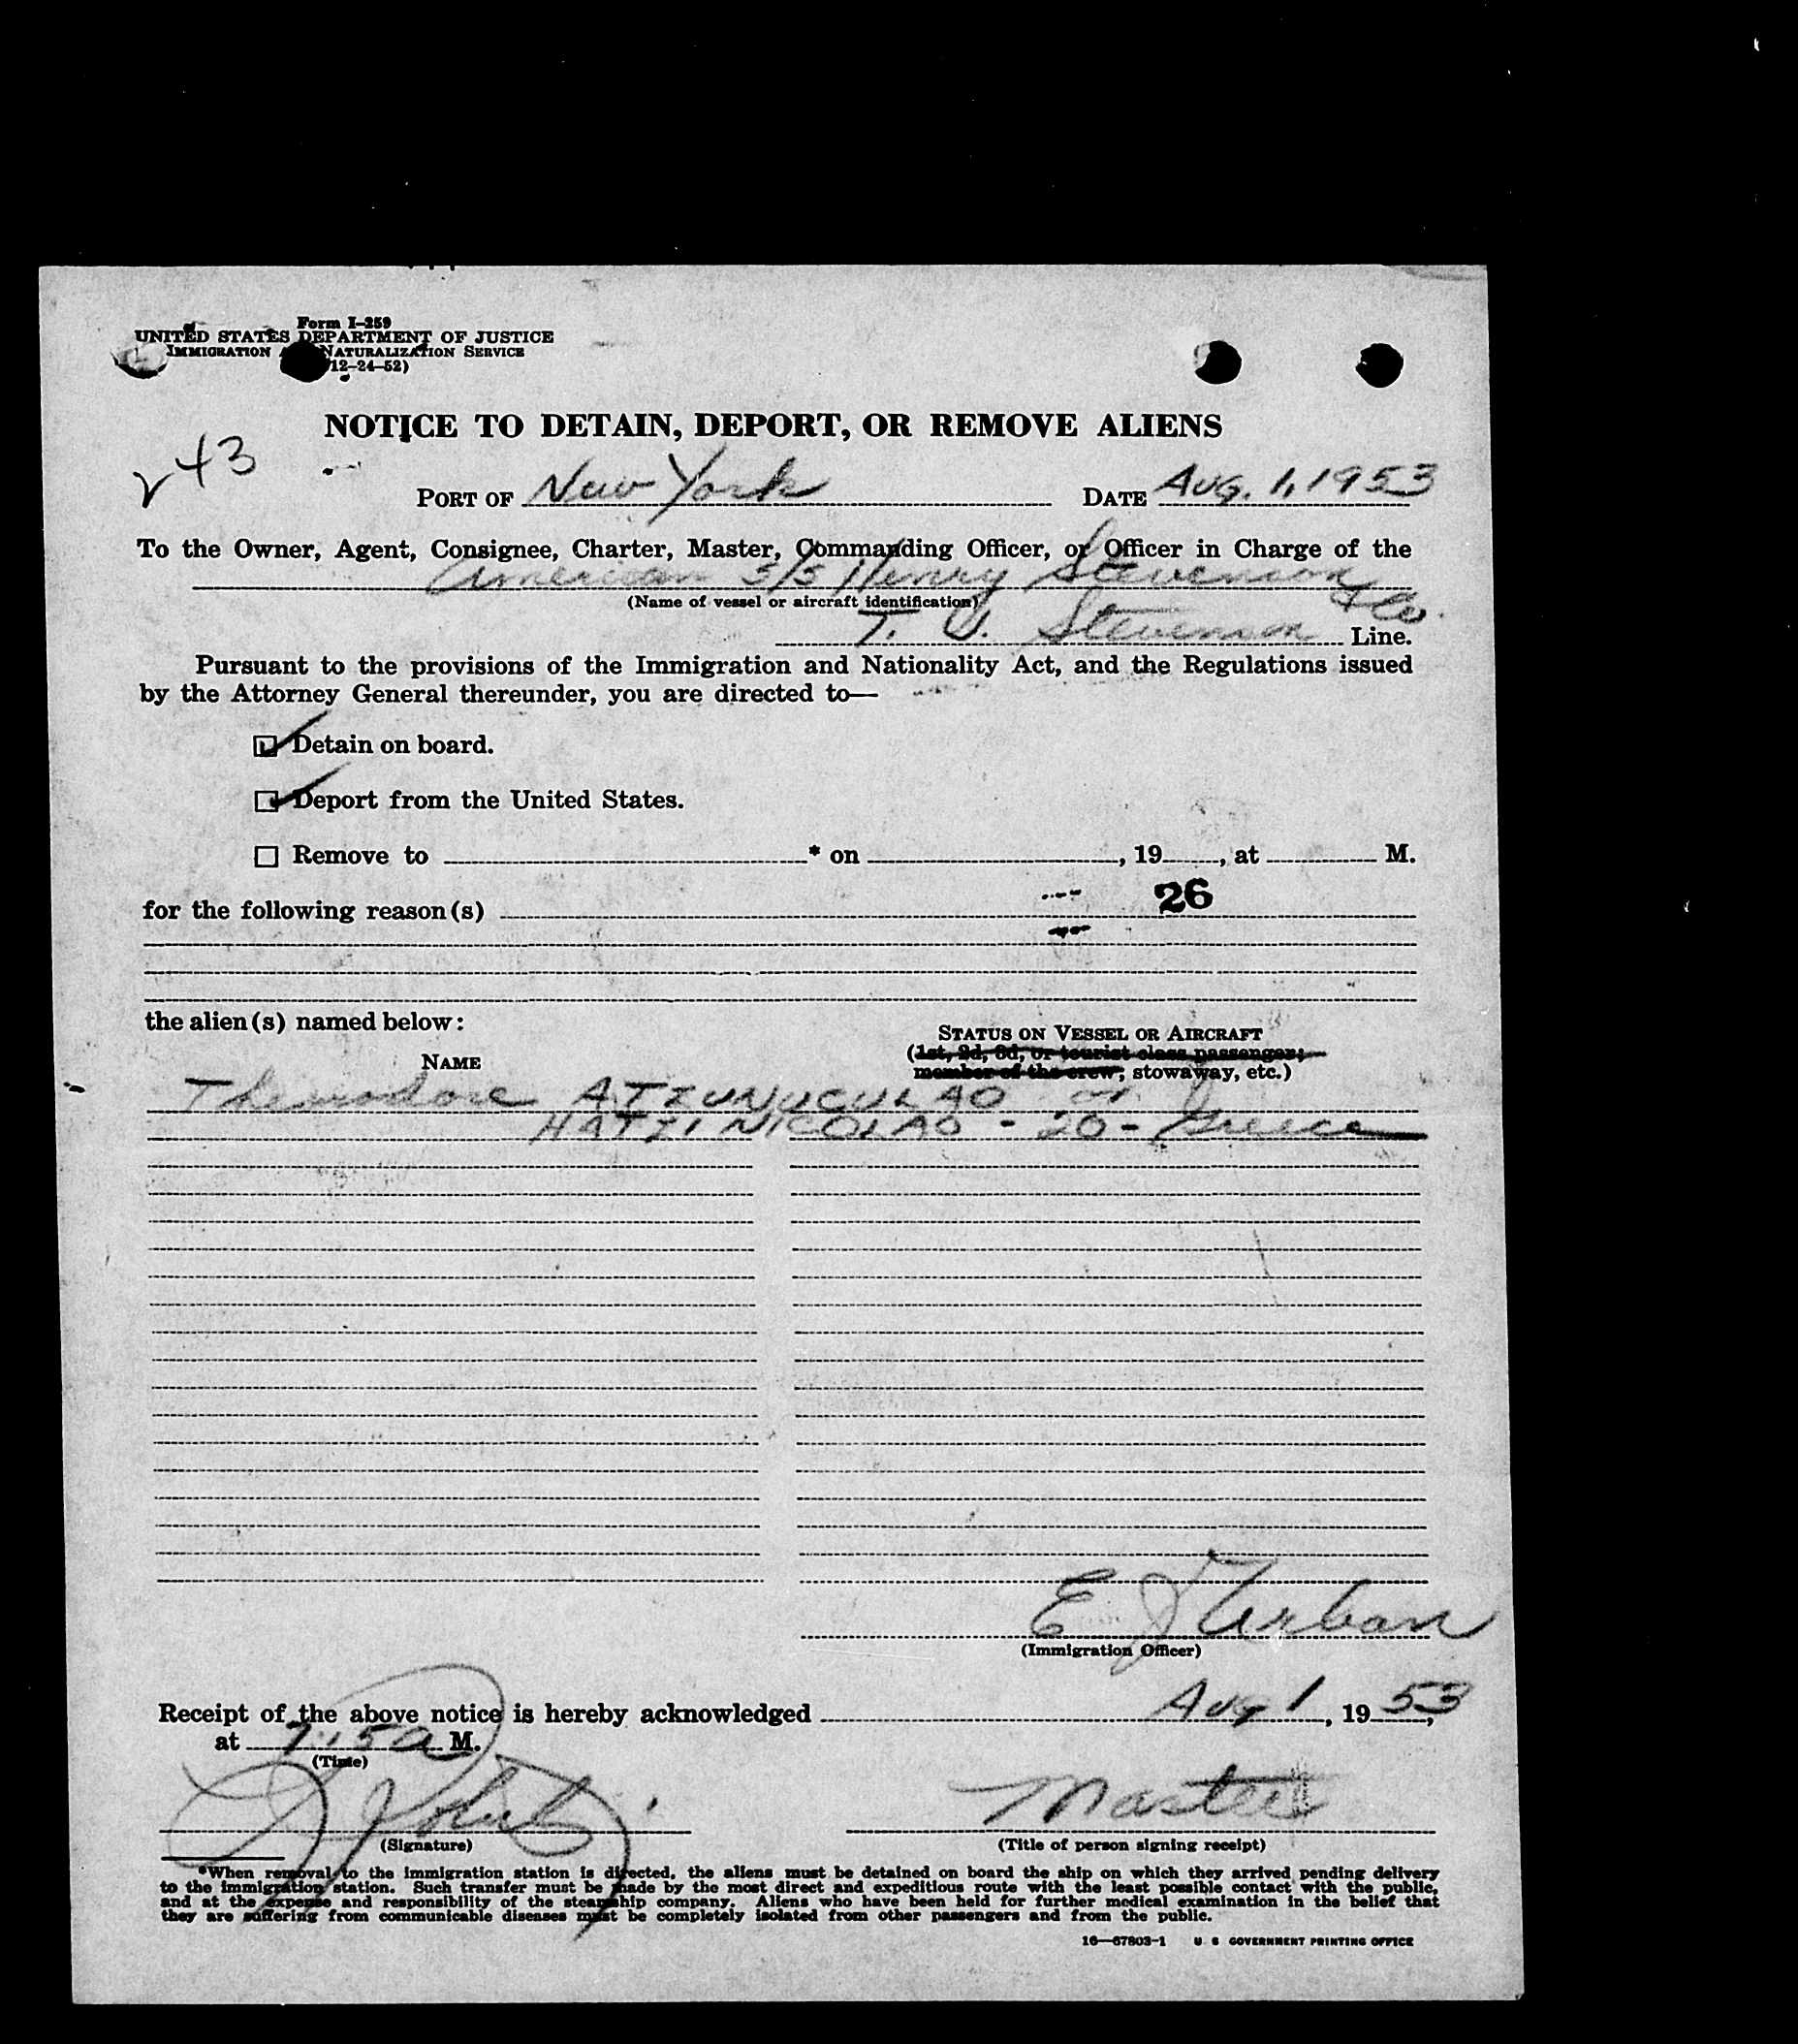 Form I-259
UNITED STATES DEPARTMENT OF JUSTICE
IMMIGRATION NATURALIZATION SERVICE
12-24-52)
NOTICE TO DETAIN, DEPORT, OR REMOVE ALIENS
43
PORT OF New York DATE Aug. 1, 1953
To the Owner, Agent, Consignee, Charter, Master, Commanding Officer, or Officer in Charge of the
American S/S Henry Stevenson
(Name of vessel or aircraft identification)
& Co.
T. J. Stevenson Line.
Pursuant to the provisions of the Immigration and Nationality Act, and the Regulations issued
by the Attorney General thereunder, you are directed to—
Detain on board.
Deport from the United States.
Remove to * on , 19 , at M.
26
for the following reason(s)
the alien(s) named below:
STATUS ON VESSEL OR AIRCRAFT
(1st, 2d, 3d, or tourist class passenger;
NAME
member of the crew; stowaway, etc.)
Theodore ATZUNUCULAO or
HATZI NICOLAO - 20 - Greece
E J Urban
(Immigration Officer)
Receipt of the above notice is hereby acknowledged Aug 1, 1953,
at 7:15a M.
(Time)
Master
(Signature) (Title of person signing receipt)
*When removal to the immigration station is directed, the aliens must be detained on board the ship on which they arrived pending delivery
to the immigration station. Such transfer must be made by the most direct and expeditious route with the least possible contact with the public,
and at the expense and responsibility of the steamship company. Aliens who have been held for further medical examination in the belief that
they are suffering from communicable diseases must be completely isolated from other passengers and from the public.
16—67803-1 U. S. GOVERNMENT PRINTING OFFICE